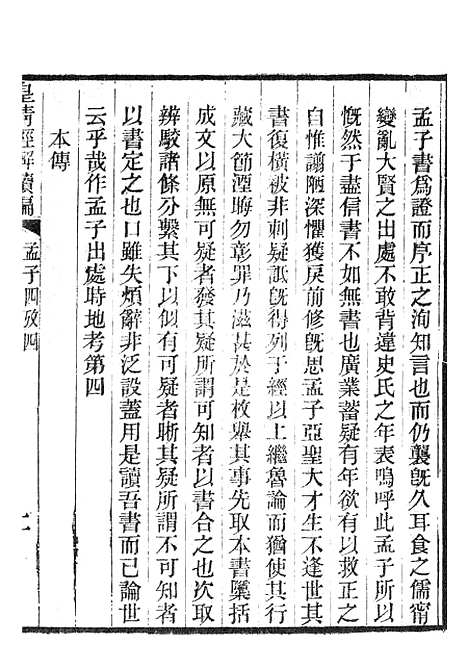 孟子書爲證而序正之洵知言也而仍襲旣久耳食之儒甯
變亂大賢之出處不敢背違史氏之年表嗚呼此孟子所以
慨然于盡信書不如無書也廣業蓄疑有年欲以救正之
自惟謭陋深懼獲戾前修旣思孟子亞聖大才生不逢世其
書復橫被非刺疑詆旣得列于經以上繼魯論而猶使其行
藏大節湮晦勿彰罪乃滋甚於是枚舉其事先取本書檃括
成文以原無可疑者發其疑所謂可知者以書合之也次取
辨駮諸條分繫其下以似有可疑者晰其疑所謂不可知者
以書定之也口雖失煩辭非泛設蓋用是讀吾書而已論世
云乎哉作孟子出處時地考第四
本傳
皇清經解續編
孟子四攷四